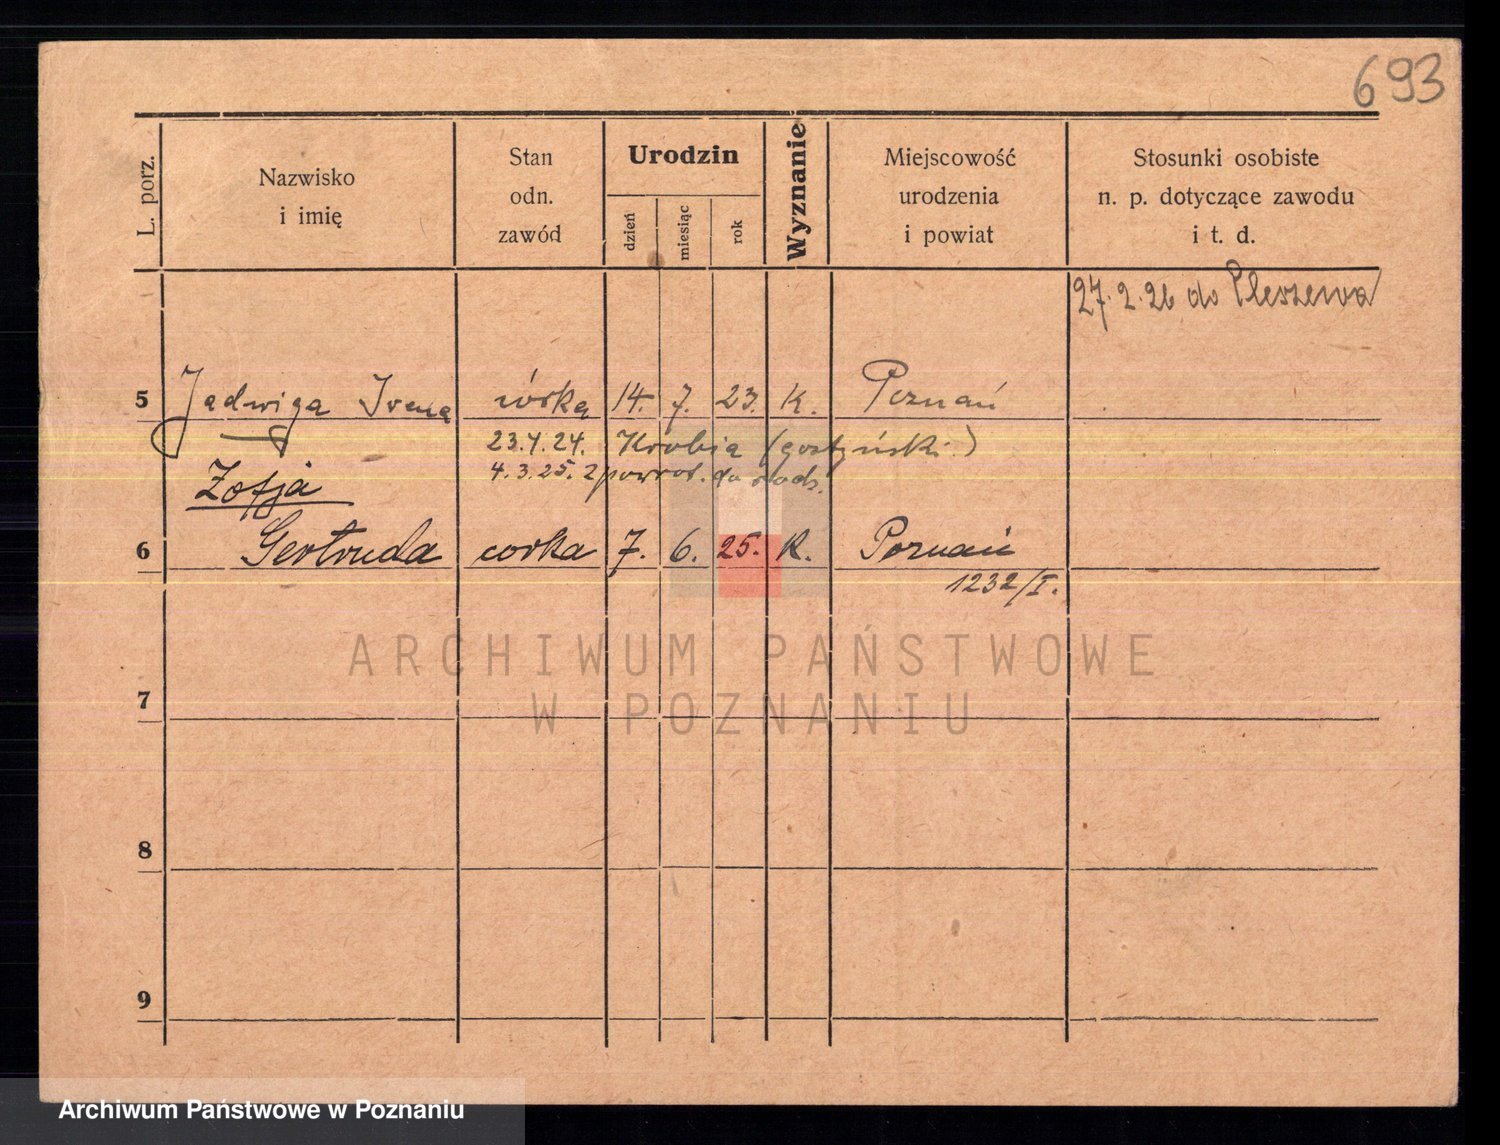 693
L. porz.
Nazwisko
i imię
Stan
odn.
zawód
Urodzin
dzień
miesiąc
rok
Wyznanie
Miejscowość
urodzenia
i powiat
Stosunki osobiste
n. p. dotyczące zawodu
i t. d.
27.2.26 do Pleszewa
5 Jadwiga Irena córka 14. 7. 23. K. Poznań
23.4.24. Krobia (gostyński)
4.3.25. z powrot. do rodz.
Zofja
6 Gertruda corka 7. 6. 25. K. Poznań
1232/I.
ARCHIWUM PAŃSTWOWE
W POZNANIU
7
8
9
Archiwum Państwowe w Poznaniu